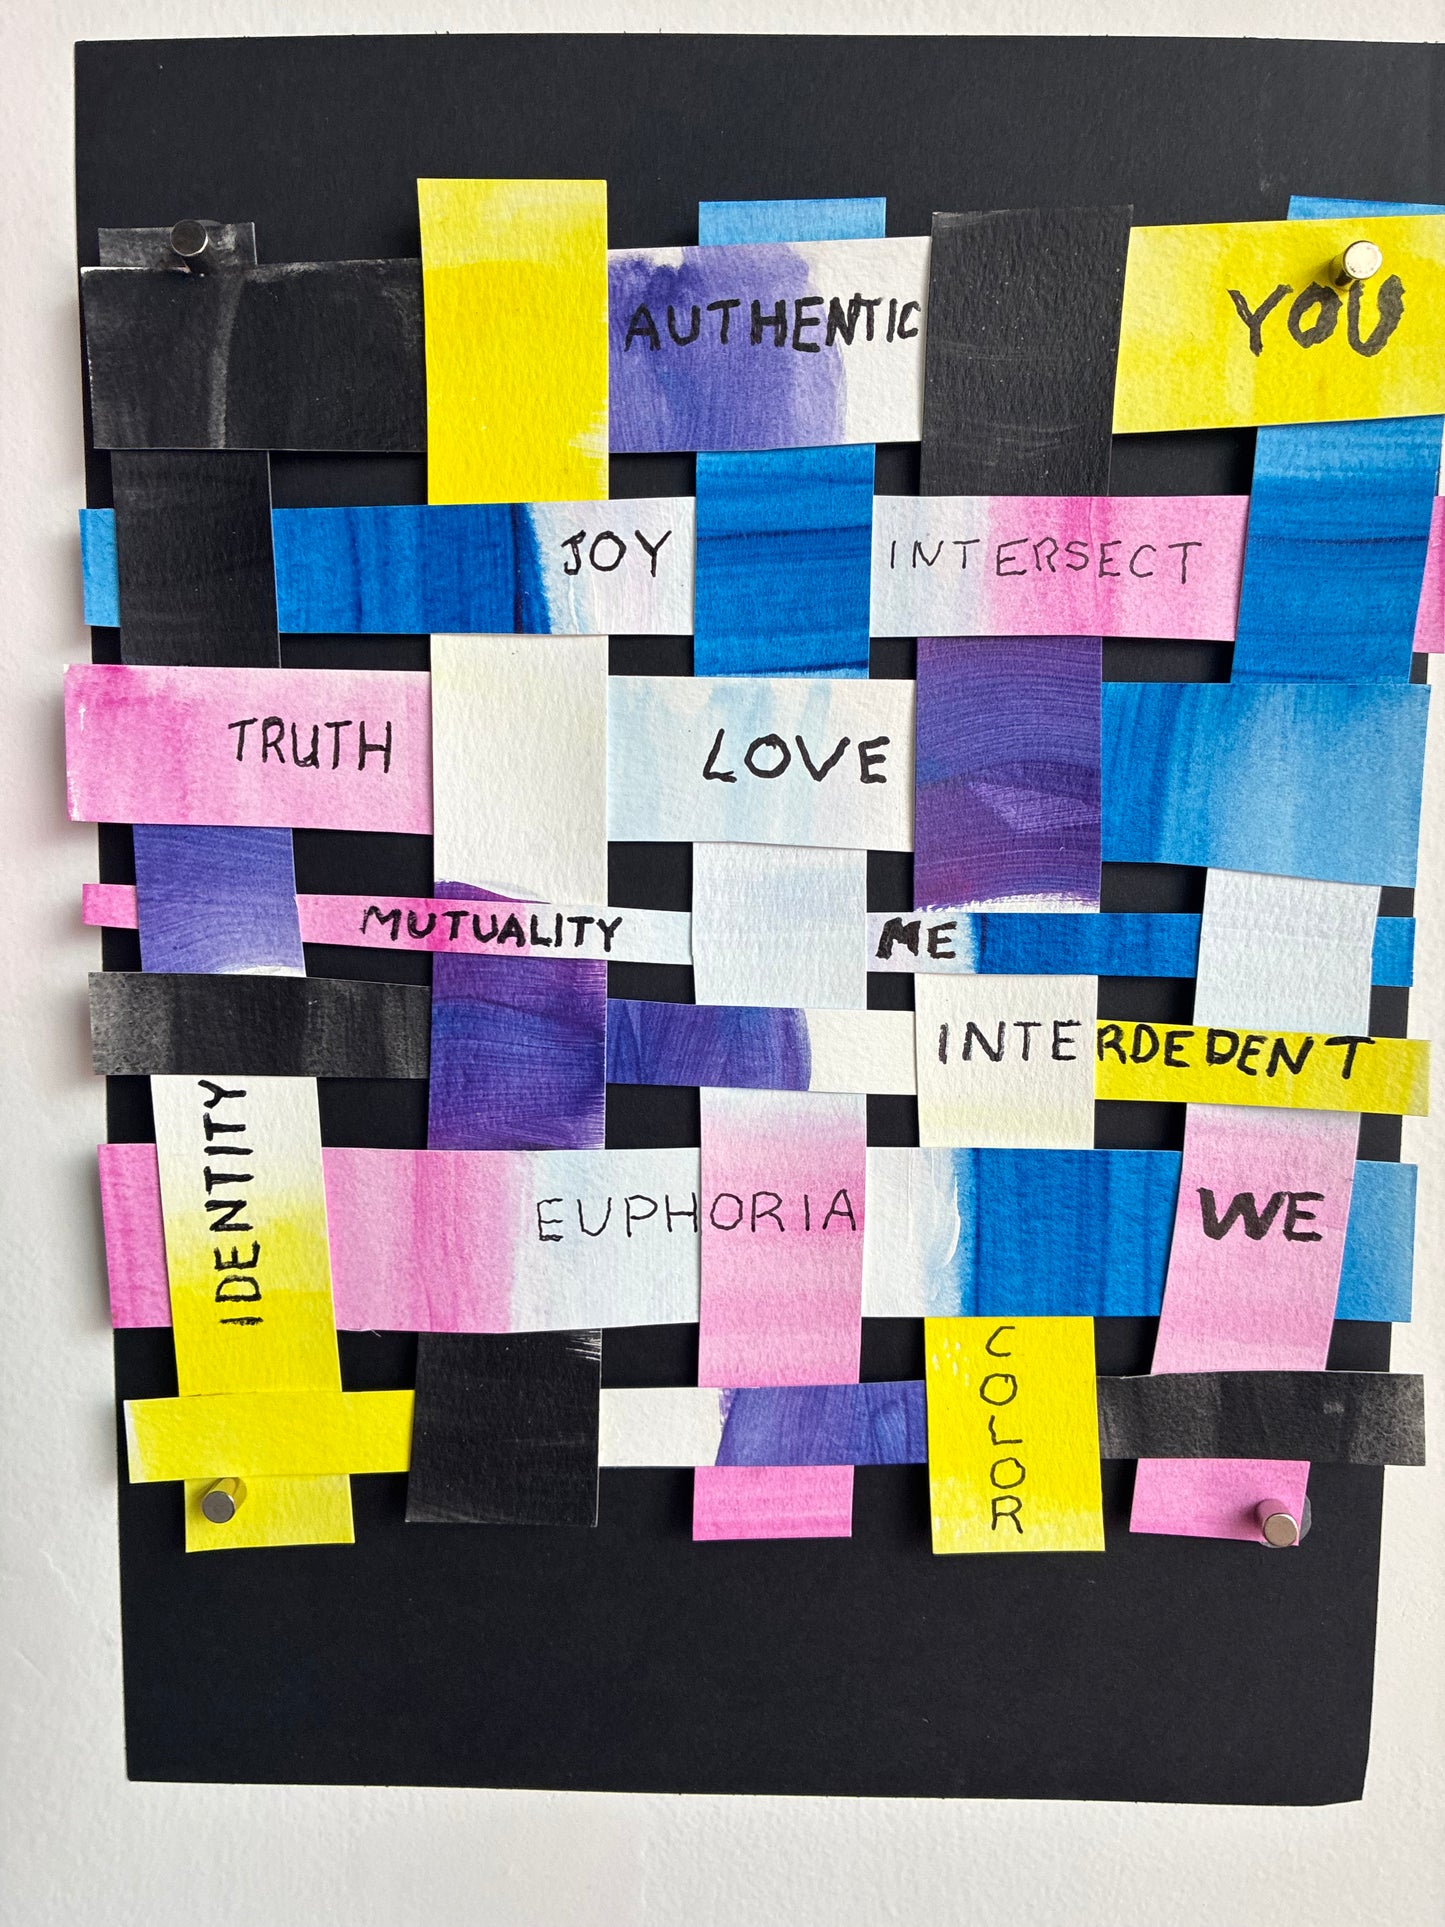 AUTHENTIC
YOU
JOY
INTERSECT
TRUTH
LOVE
MUTUALITY
ME
INTERDEDENT
IDENTITY
EUPHORIA
WE
COLOR